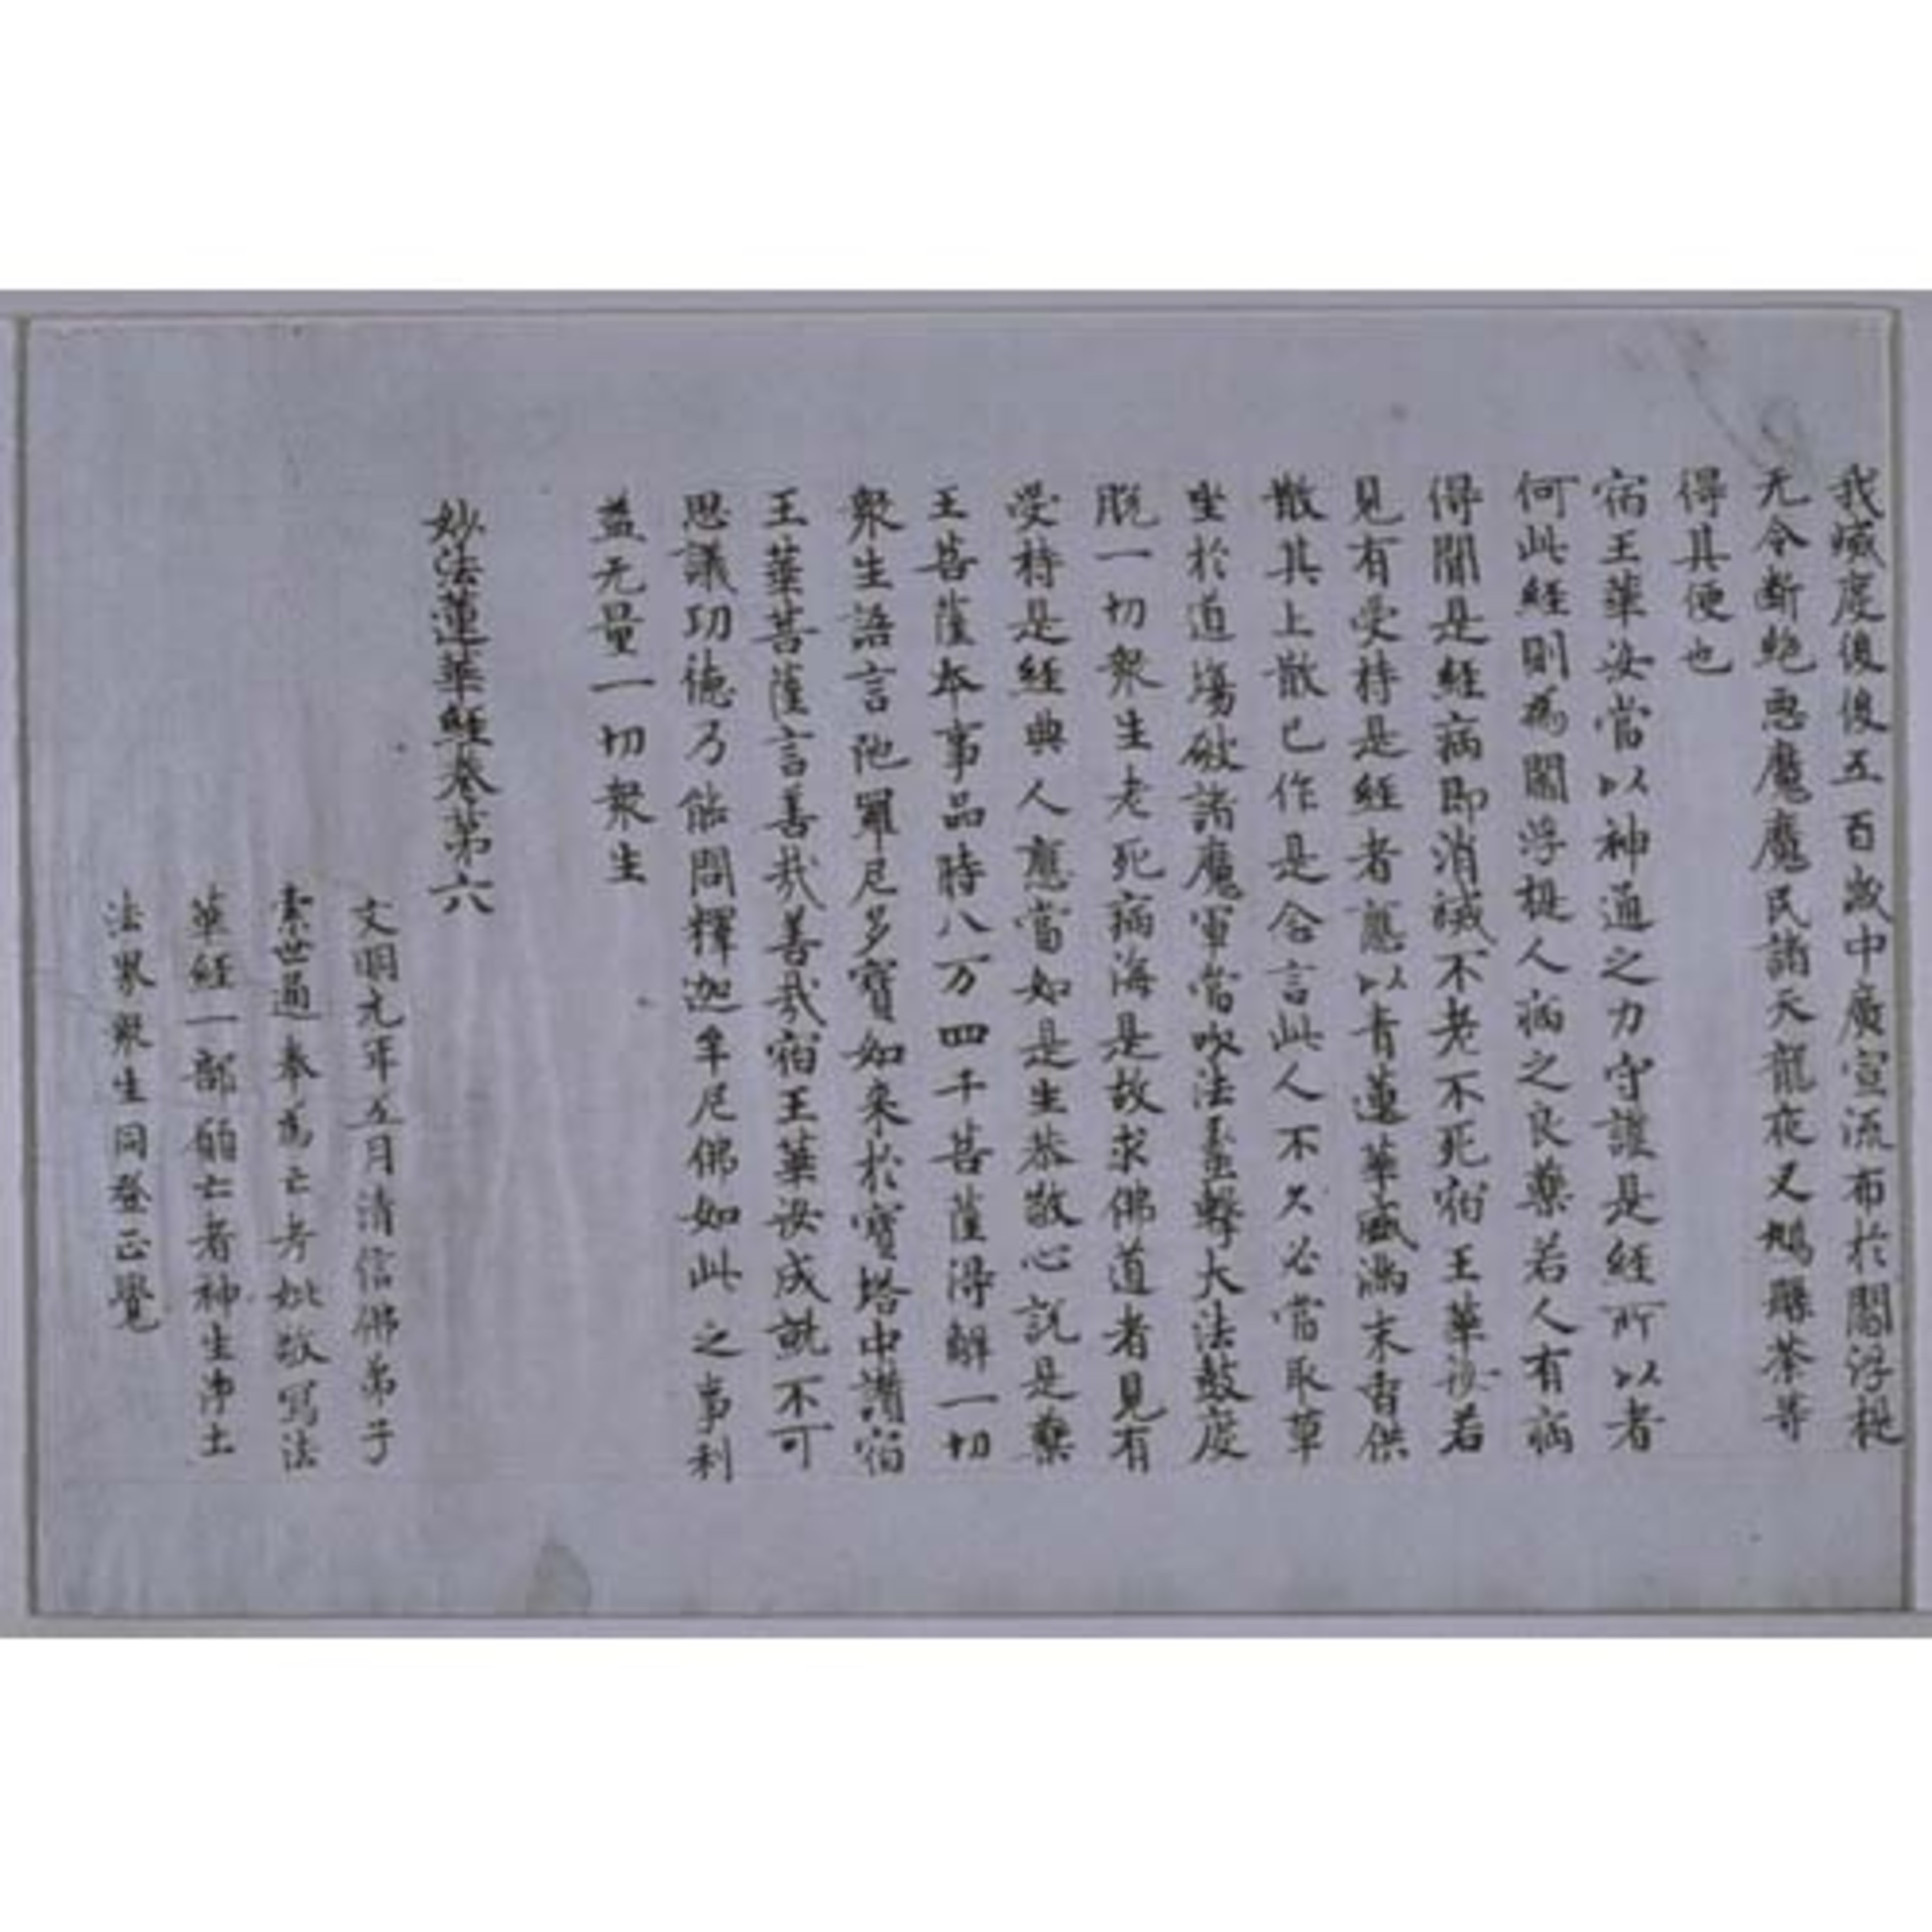 我滅度後後五百歲中廣宣流布於閻浮提
无令斷絶惡魔魔民諸天龍夜叉鳩縣荼等
得其便也
宿王華汝當以神通之力守護是經所以者
何此經則為閻浮提人病之良藥若人有病
得聞是經病即消滅不老不死宿王華汝若
見有受持是經者應以青蓮華盛滿末香供
散其上散已作是念言此人不久必當取草
坐於道場破諸魔軍當吹法蠡擊大法鼓度
脫一切衆生老死病海是故求佛道者見有
受持是經典人應當如是生恭敬心説是藥
王菩薩本事品時八万四千菩薩得解一切
衆生語言陁羅尼多寶如來於寶塔中讚宿
王華菩薩言善哉善哉宿王華汝成就不可
思議功德乃能問釋迦牟尼佛如此之事利
益无量一切衆生
妙法蓮華經卷第六
文明元年五月清信佛弟子
索世通奉為亡考妣敬寫法
華經一部願亡者神生淨土
法界衆生同登正覺